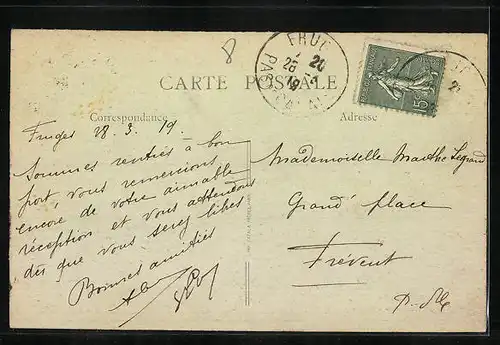 8
FRUG
28
PAS
CARTE POSTALE
Correspondance
Adresse
Fruges 28.3.19.
Sommes rentrés à bon
port, vous remercions
encore de votre aimable
réception et vous attendons
dès que vous serez libres
Bonnes amitiés
Mademoiselle Marthe Legrand
Grand' place
Frévent
P-de-C